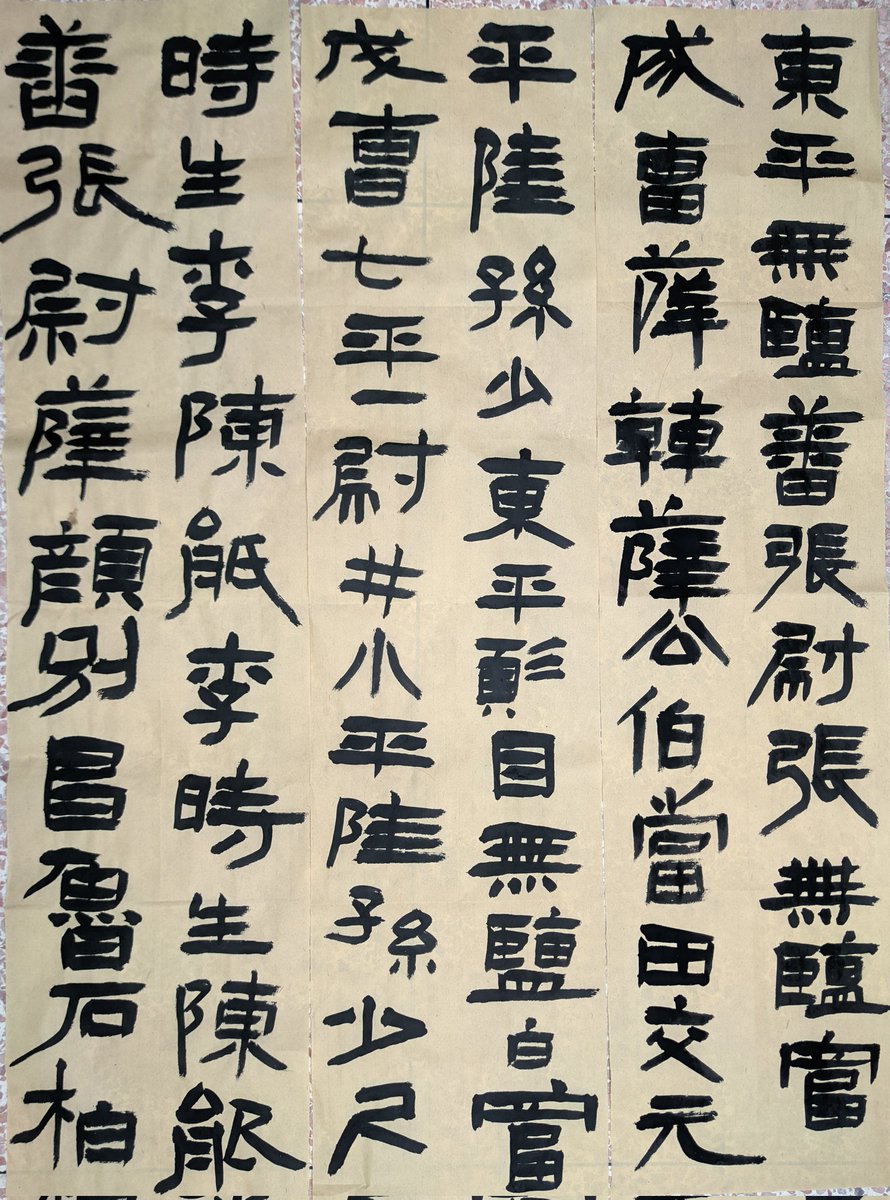 東平無鹽蕃張尉張無鹽富
成曹薛韓薛公伯當田交元
平陸孫少東平鄣目無鹽白富
戊曹七平一尉井小平陸孫少尺
時生李陳能李時生陳能
蕃張尉薛顏別昌魯石柏